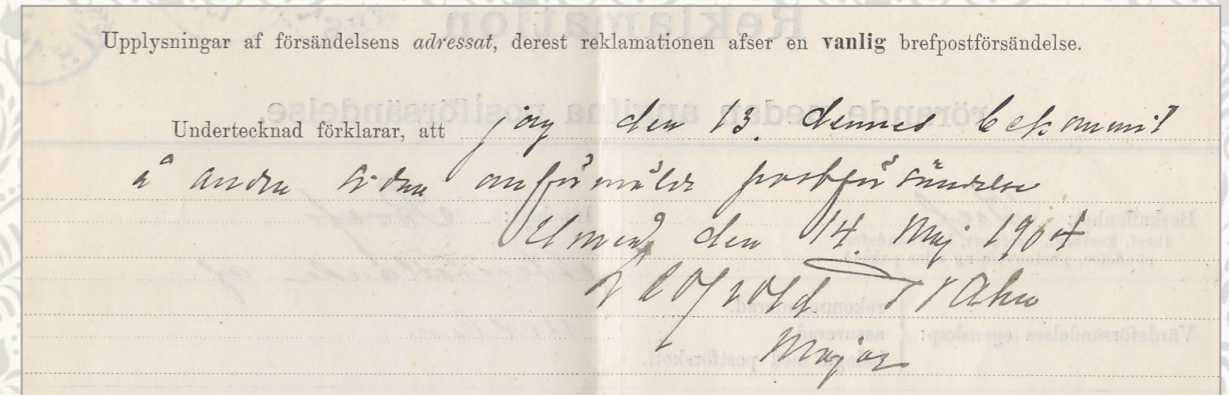 Upplysningar af försändelsens adressat, derest reklamationen afser en vanlig brefpostförsändelse.
Undertecknad förklarar, att jag den 13. dennes bekommit
å andra sidan anförmälde postförsändelse
Umeå den 14. Maj 1904
Major